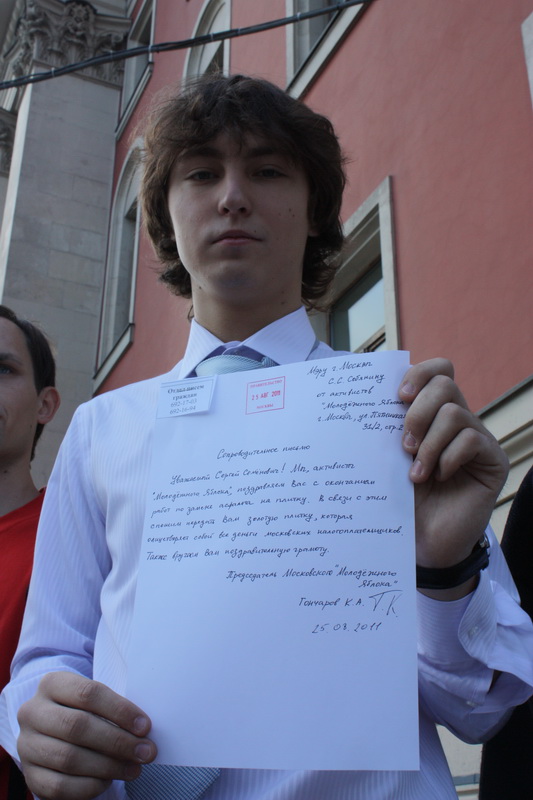 Отдел писем
граждан
692-17-01
692-16-94
ПРАВИТЕЛЬСТВО
25 АВГ 2011
МОСКВЫ
Мэру г. Москвы
С.С. Собянину
от активистов
"Молодёжного Яблока
г. Москва, ул. Пятницкая
31/2, стр. 2
Сопроводительное письмо
Уважаемый Сергей Семёнович! Мы, активисты
"Молодёжного Яблока", поздравляем Вас с окончанием
работ по замене асфальта на плитку. В связи с этим
спешим передать Вам золотую плитку, которая
олицетворяет собой все деньги московских налогоплательщиков.
Также вручаем Вам поздравительную грамоту.
Председатель Московского "Молодёжного
Яблока"
Гончаров К.А.
25.08.2011